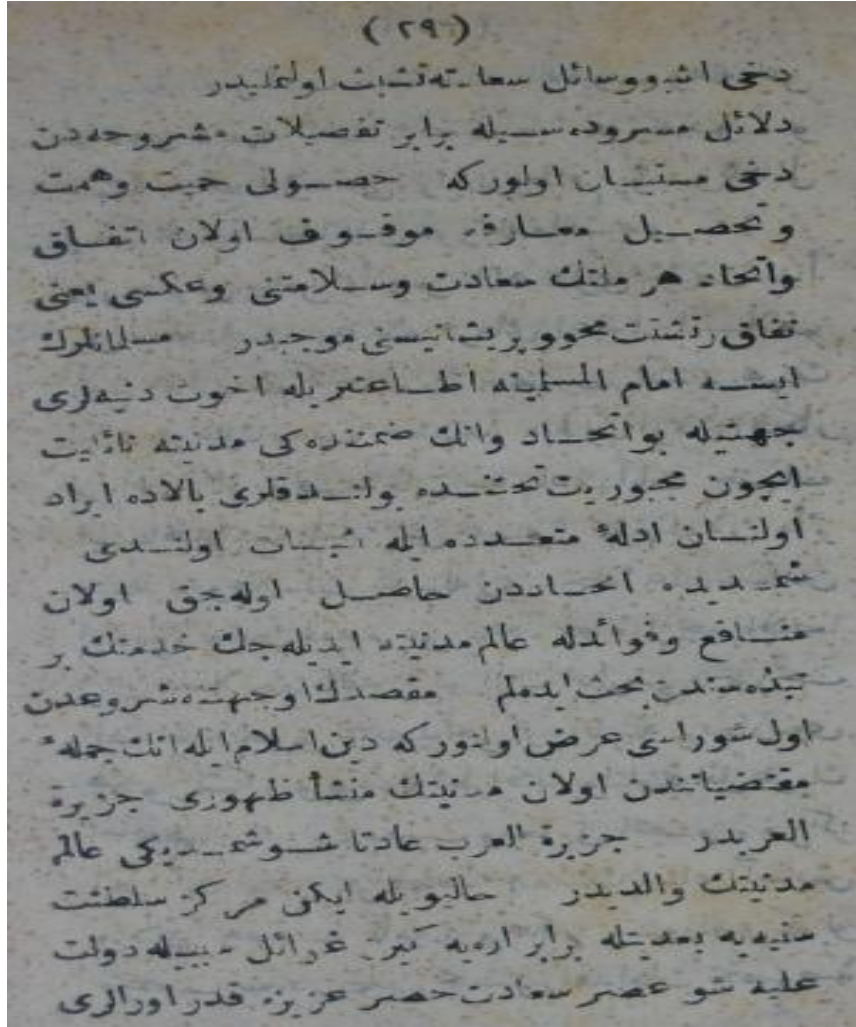 ( ٢٩ )
دخی اشبو وسائل سعادته تشبث اولنملیدر
دلائل مسروده سیله برابر تفصیلات مشروحه دن
دخی مستبان اولور که حصولی حمیت وهمت
و تحصیل معارفه موقوف اولان اتفاق
واتحاد هر ملتك سعادت وسلامتنی وعکسی یعنی
نفاق وتشتت محو و پریشانیسنی موجبدر مسلمانلرك
ایسه امام المسلمینه اطاعتلریله اخوت دینیه لری
جهتیله بواتحاد وانك ضمننده کی مدنیته تابعیت
ایچون مجبوریت تحتنده بولندقلری بالاده ایراد
اولنان ادلهٔ متعدده ایله اثبات اولندی
شمدیده اتحاددن حاصل اوله جق اولان
منافع وفوائدله عالم مدنیته ایدیله جك خدمتك بر
نبذه سندن بحث ایده لم مقصدك اوجهتنه شروعدن
اول شوراسی عرض اولنور که دین اسلام ایله انك جملهٔ
مقتضیاتندن اولان مدنیتك منشأ ظهوری جزیرة
العربدر جزیرة العرب عادتا شو شمدیکی عالم
مدنیتك والدیدر حالبویله ایکن مرکز سلطنت
سنیه یه بعدیتله برابر ارایه کیرن غوائل سببیله دولت
علیه شو عصر سعادت حصر عزیزه قدر اورالری